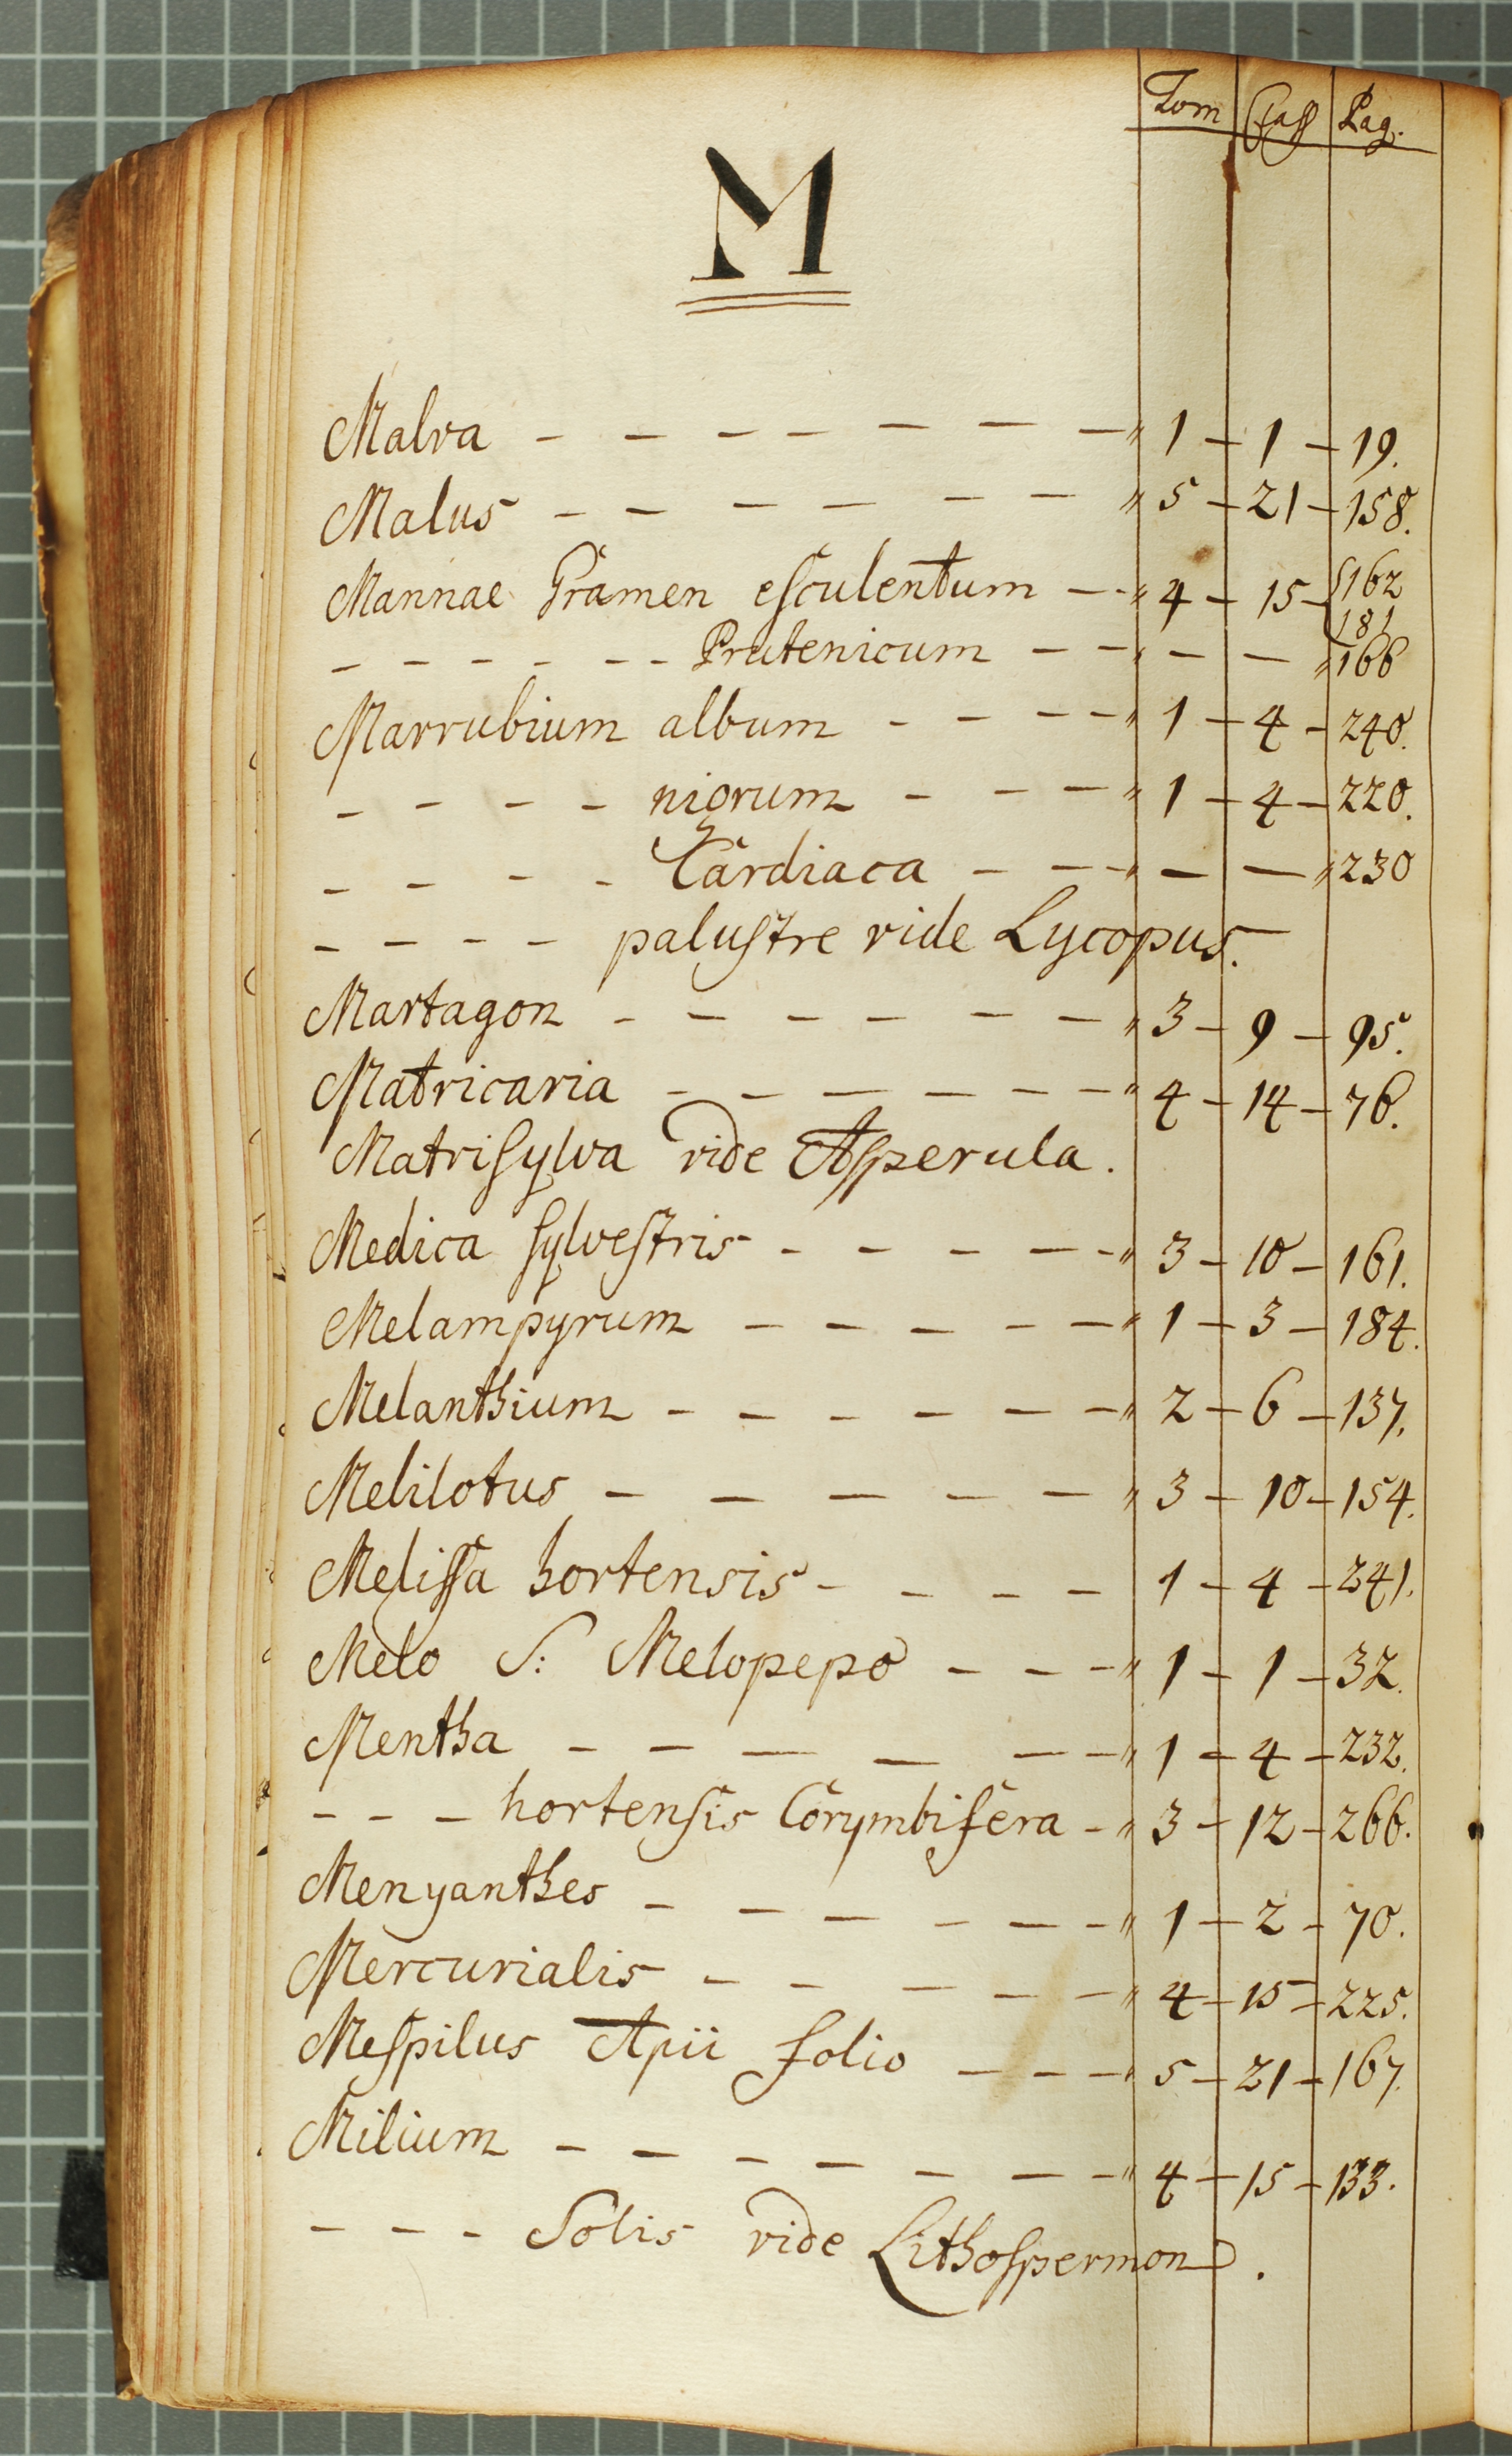 Tom Claſſ Pag.
M
Malva - - - - - - - - " 1 - 1 - 19.
Malus - - - - - - - " 5 - 21 - 158.
Mannae Gramen eſculentum - - " 4 - 15 - { 162
181
- - - - - - - Prutenicum - - " - - " 166
Marrubium album - - - - " 1 - 4 - 240.
- - - - nigrum - - - " 1 - 4 - 220.
- - - - Cardiaca - - - " - - " 230
- - - - paluſtre vide Lycopus.
Martagon - - - - - - - " 3 - 9 - 95.
Matricaria - - - - - - - " 4 - 14 - 76.
Matriſylva vide Aſperula.
Medica ſylveſtris - - - - - " 3 - 10 - 161.
Melampyrum - - - - - " 1 - 3 - 184.
Melanthium - - - - - - - " 2 - 6 - 137.
Melilotus - - - - - " 3 - 10 - 154.
Meliſſa hortensis - - - - 1 - 4 - 241.
Melo S: Melopepo - - - " 1 - 1 - 32.
Mentha - - - - - - " 1 - 4 - 232.
- - - hortenſis Corymbifera - " 3 - 12 - 266.
Menyanthes - - - - - - " 1 - 2 - 70.
Mercurialis - - - - - " 4 - 15 - 225.
Meſpilus Apii folio - - - " 5 - 21 - 167.
Milium - - - - - - - " 4 - 15 - 133.
- - - Solis vide Lithoſpermon.